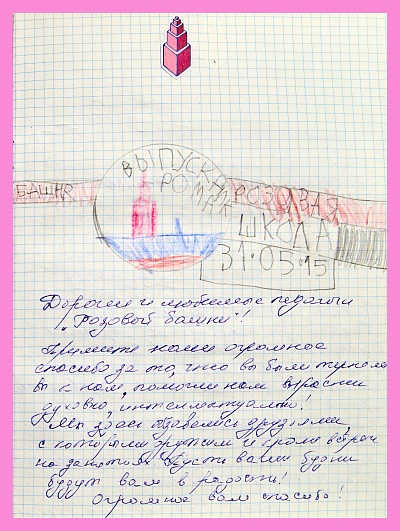 ВЫПУСК
РОМАН
БАШНЯ
РОЗОВАЯ
ШКОЛА
31.05.15
Дорогие и любимые педагоги
"Розовой башни"!
Примите наше огромное
спасибо за то, что вы были терпели
вы к нам, помогли нам вырасти
духовно, интелектуально!
Мы здесь обзавелись друзьями,
с которыми дружим и
на занятиях. Пусть ваши будни
будут вам в радость!
Огромное вам спасибо!